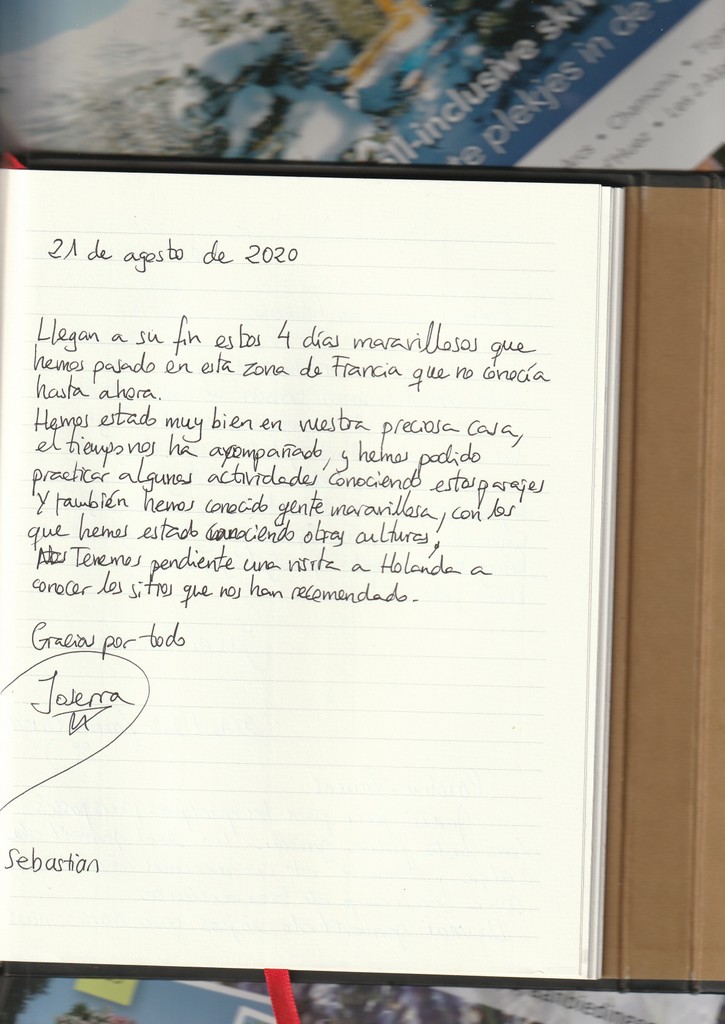 all-inclusive ski
te plekjes in de
Chamonix • 
• Les 2 Al
21 de agosto de 2020
Llegan a su fin estos 4 días maravillosos que
hemos pasado en esta zona de Francia que no conocía
hasta ahora.
Hemos estado muy bien en vuestra preciosa casa,
el tiempo nos ha acompañado, y hemos podido
practicar algunas actividades conociendo estos parajes
Y también hemos conocido gente maravillosa, con los
que hemos estado conociendo otras culturas,
Tenemos pendiente una visita a Holanda a
conocer los sitios que nos han recomendado.
Gracias por todo
Joserra
Sebastian